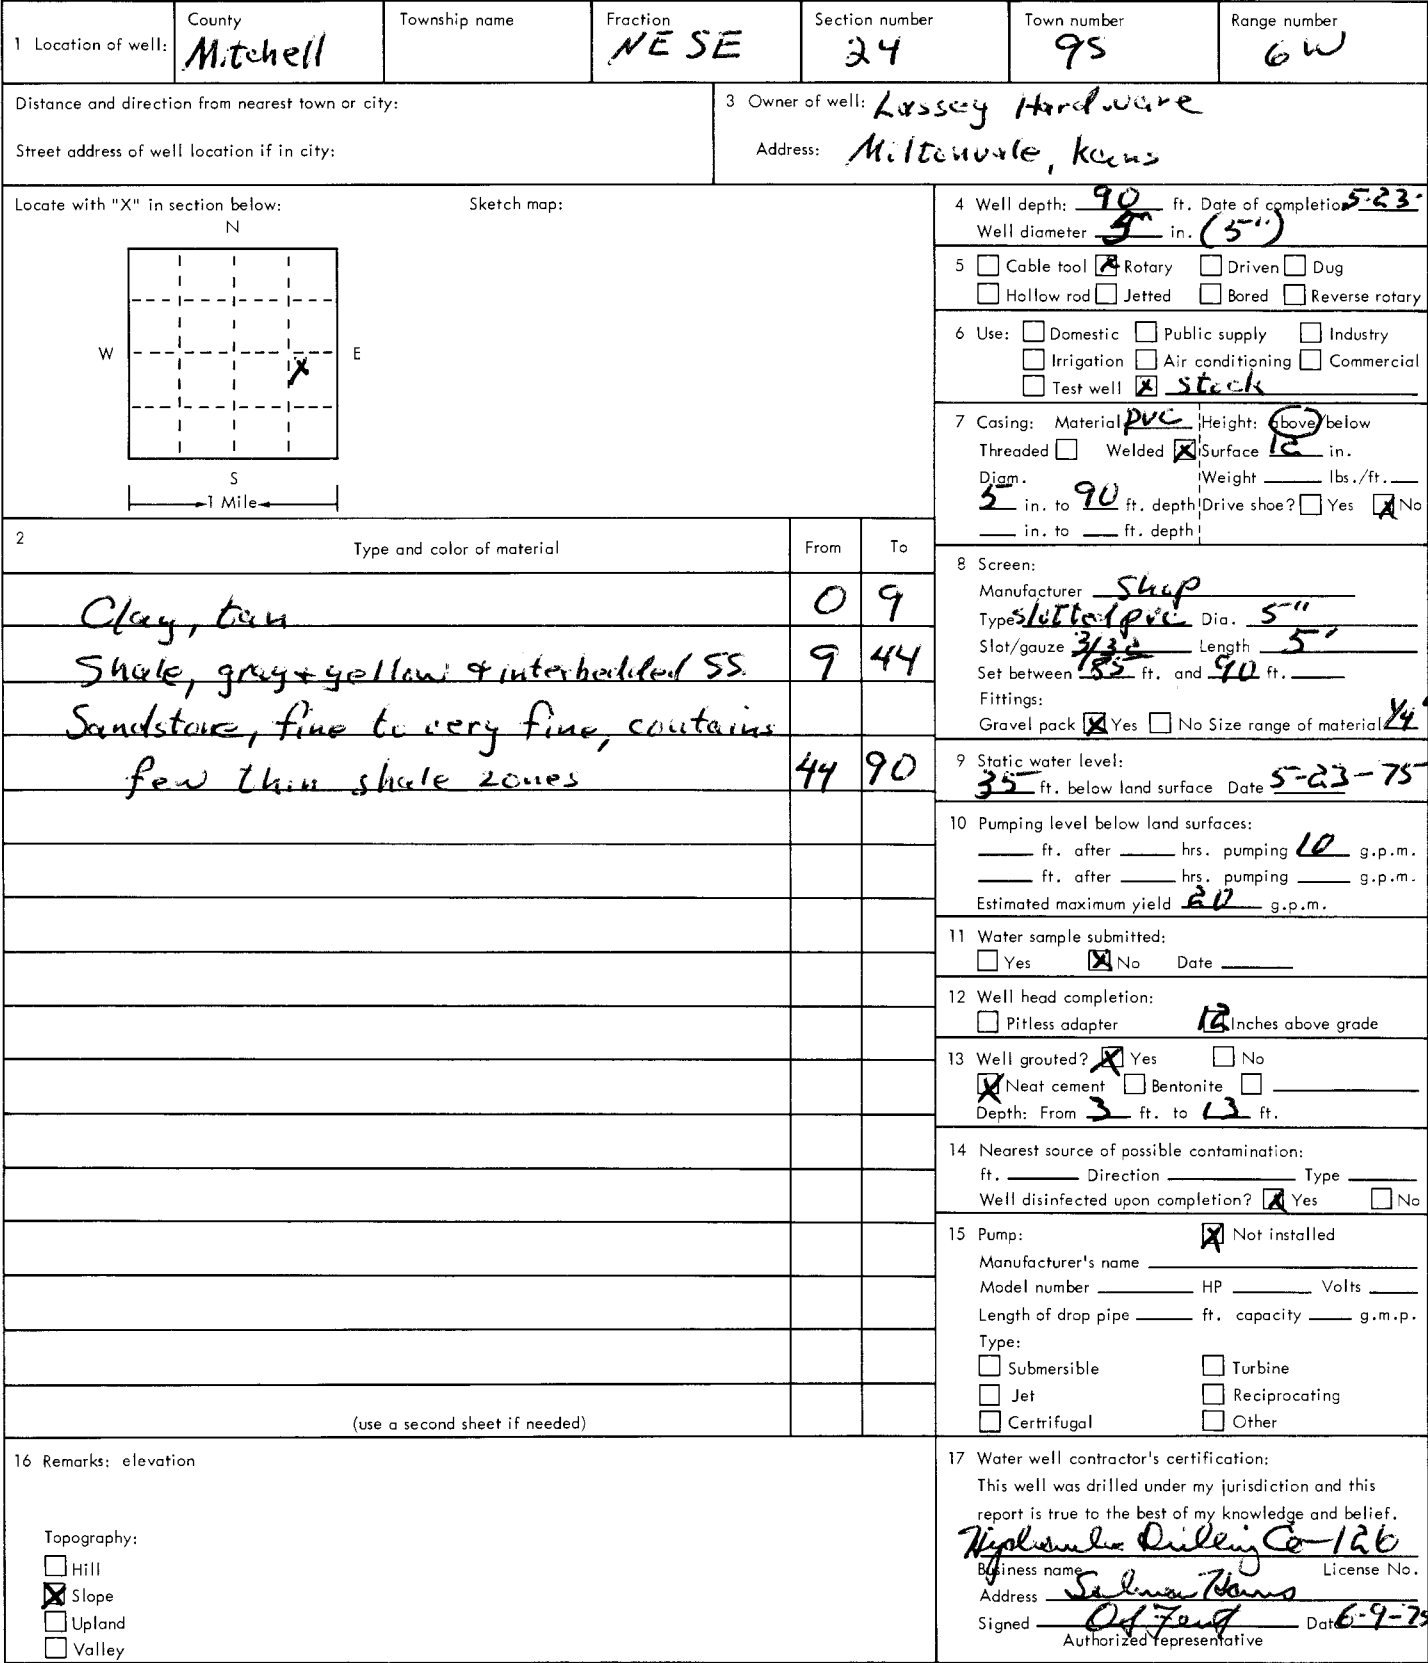 1 Location of well:
County
Mitchell
Township name
Fraction
NE SE
Section number
24
Town number
9S
Range number
6W
Distance and direction from nearest town or city:
Street address of well location if in city:
3 Owner of well: Lassey Hardware
Address: Miltonvale, Kans
Locate with "X" in section below:
Sketch map:
N
W E
X
S
1 Mile
2
Type and color of material From To
Clay, tan 0 9
Shale, gray + yellow & interbedded SS. 9 44
Sandstone, fine to very fine, contains
few thin shale zones 44 90
(use a second sheet if needed)
4 Well depth: 90 ft. Date of completion 5-23-
Well diameter 5" in. (5")
5 Cable tool X Rotary Driven Dug
Hollow rod Jetted Bored Reverse rotary
6 Use: Domestic Public supply Industry
Irrigation Air conditioning Commercial
Test well X stock
7 Casing: Material PVC Height: above/below
Threaded Welded X Surface 12 in.
Diam. Weight lbs./ft.
5 in. to 90 ft. depth Drive shoe? Yes X No
in. to ft. depth
8 Screen:
Manufacturer Shop
Type slotted pvc Dia. 5"
Slot/gauze 3/32 Length 5'
Set between 85 ft. and 90 ft.
Fittings:
Gravel pack X Yes No Size range of material 1/4"
9 Static water level:
35 ft. below land surface Date 5-23-75
10 Pumping level below land surfaces:
ft. after hrs. pumping 10 g.p.m.
ft. after hrs. pumping g.p.m.
Estimated maximum yield 20 g.p.m.
11 Water sample submitted:
Yes X No Date
12 Well head completion:
Pitless adapter 12 Inches above grade
13 Well grouted? X Yes No
X Neat cement Bentonite
Depth: From 3 ft. to 13 ft.
14 Nearest source of possible contamination:
ft. Direction Type
Well disinfected upon completion? X Yes No
15 Pump: X Not installed
Manufacturer's name
Model number HP Volts
Length of drop pipe ft. capacity g.m.p.
Type:
Submersible Turbine
Jet Reciprocating
Certrifugal Other
16 Remarks: elevation
Topography:
Hill
X Slope
Upland
Valley
17 Water well contractor's certification:
This well was drilled under my jurisdiction and this
report is true to the best of my knowledge and belief.
Drilling Co-126
Business name License No.
Address Salina Kans
Signed Date 6-9-75
Authorized representative